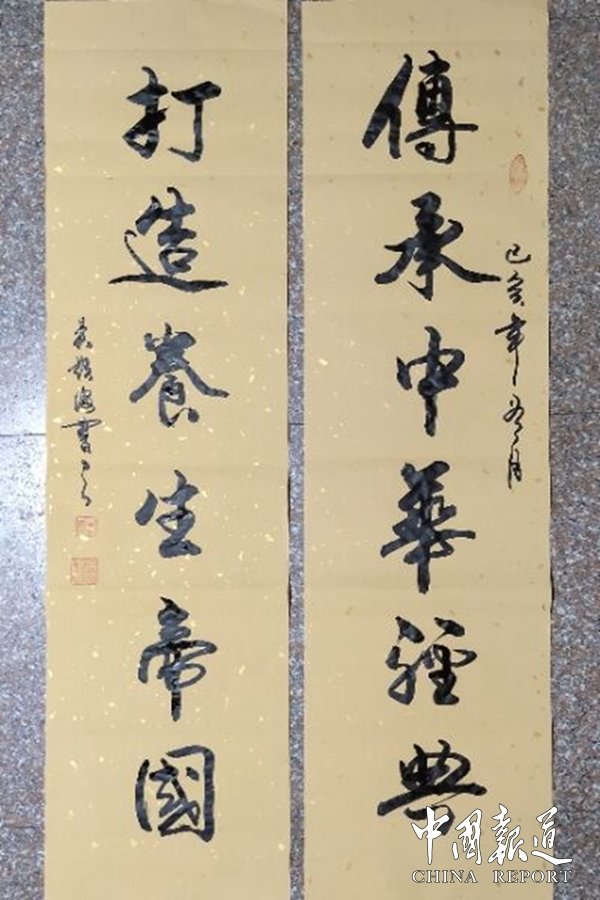 傳承中華經典
己亥年五月
打造養生帝國
書
中國報道
CHINA REPORT